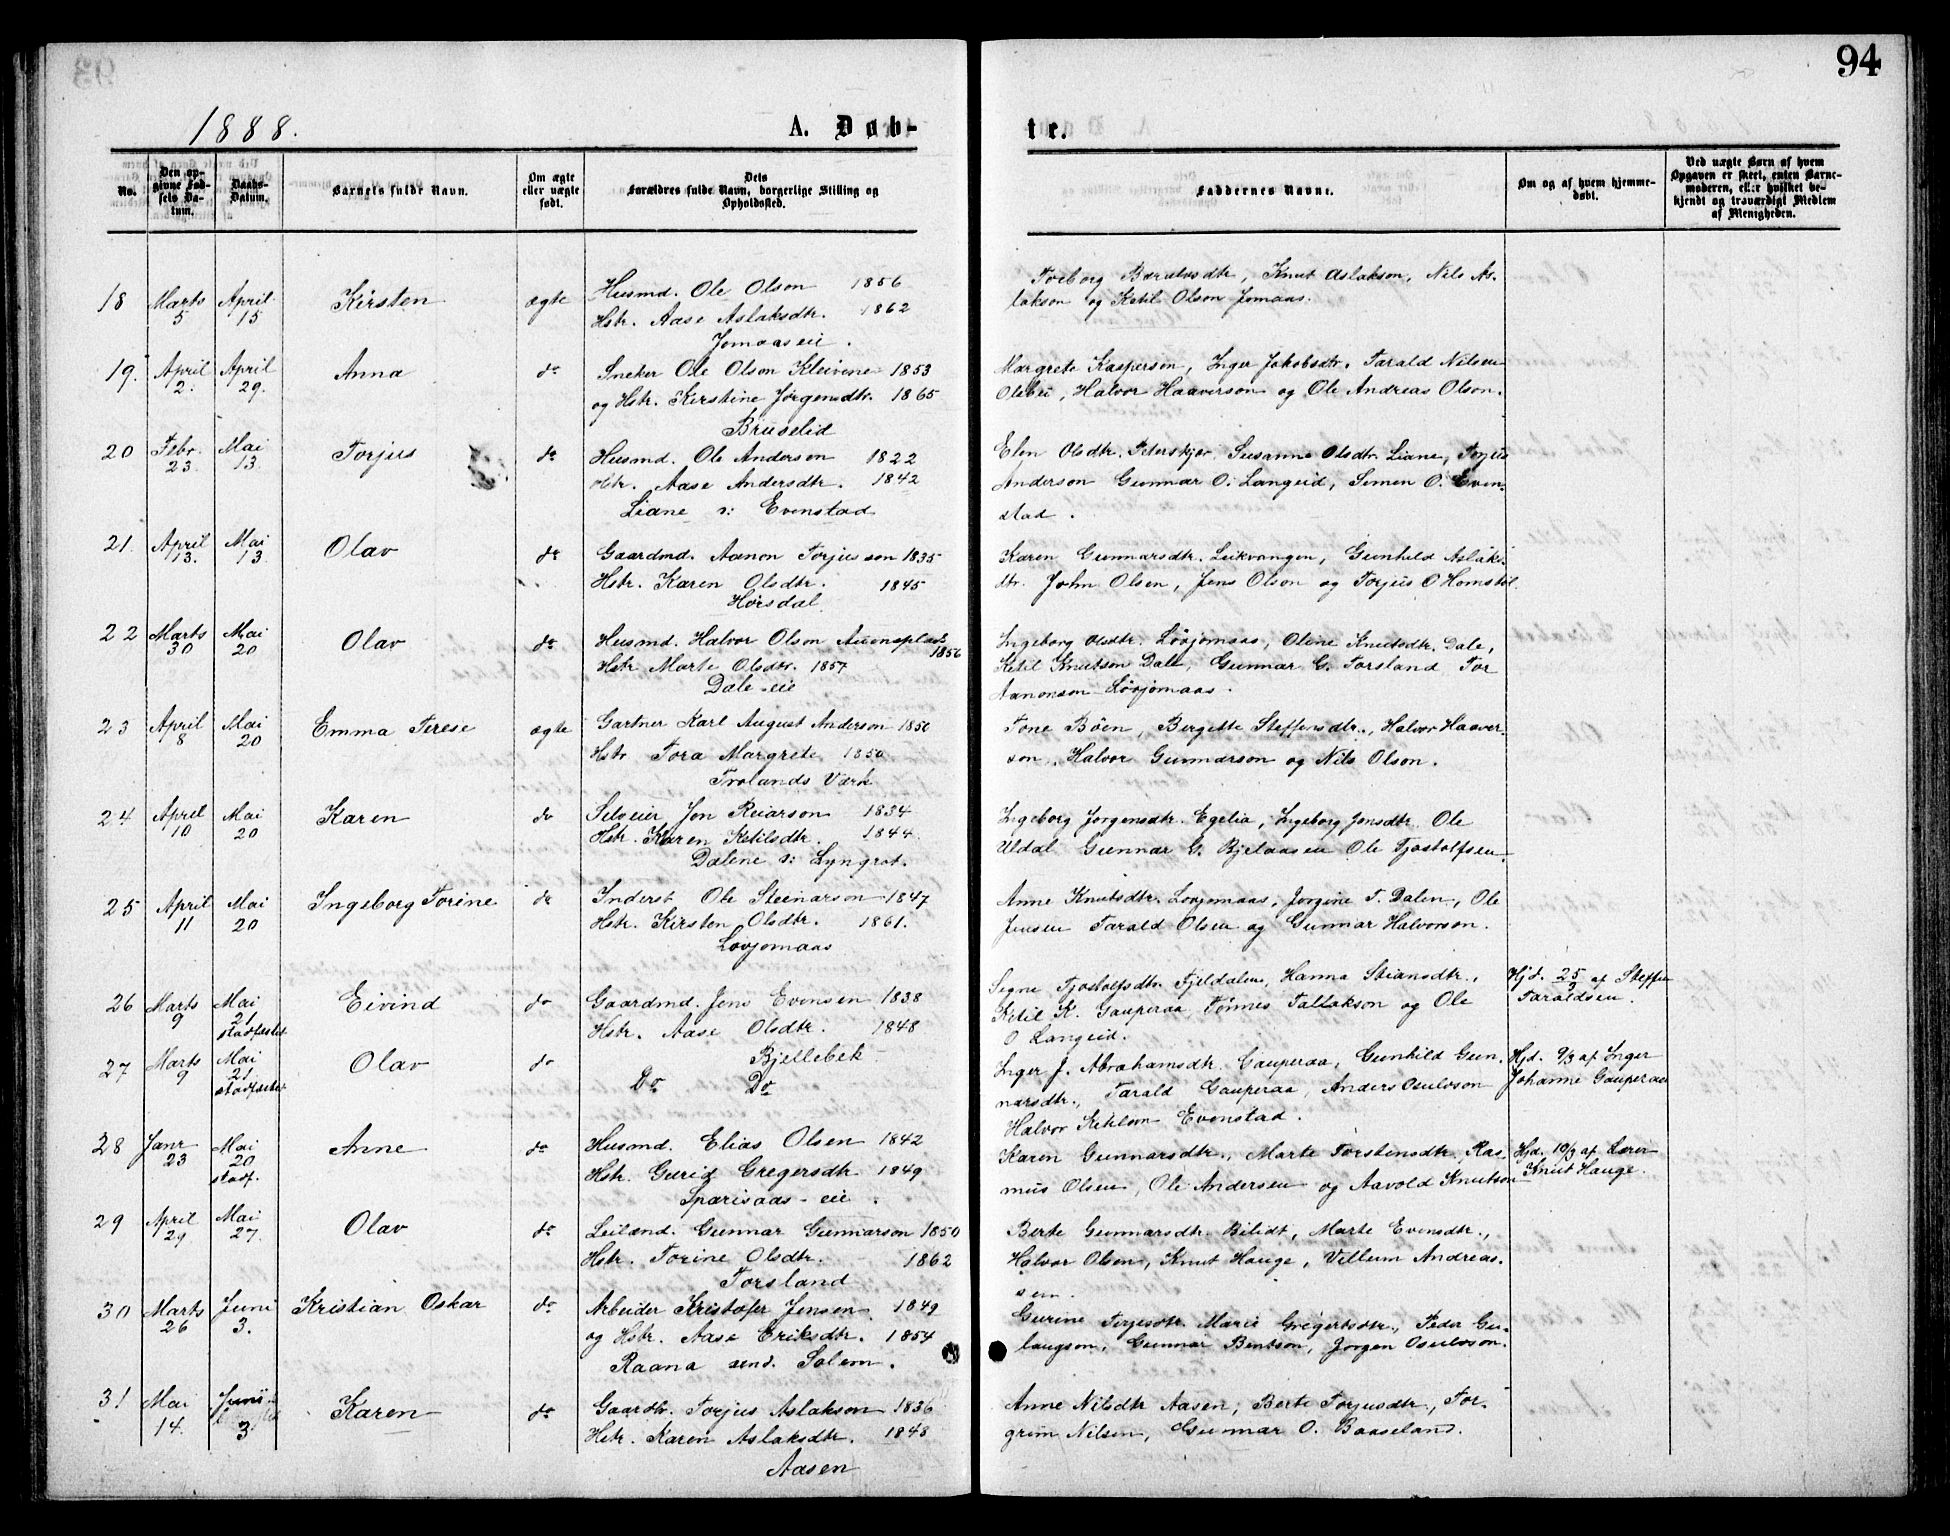 94
1888.
A. Døb-
te.
No.
Den op-
givne Fød-
sels Da-
tum.
Daabs-
Datum.
Barnets fulde Navn.
Om ægte
eller uægte
født.
Dets
Forældres fulde Navn, borgerlige Stilling og
Opholdssted.
Faddernes Navne.
Om og af hvem hjemme-
døbt.
Ved uægte Børn af hvem
Opgaven er skeet, enten Barne-
moderen, eller hvilket be-
kjendt og troværdigt Medlem
af Menigheden.
18 Marts 5 April 15 Kirsten ægte Husmd. Ole Olson 1856
Hstr. Aase Aslaksdtr. 1862
Jomaaseie.
Knut Aslakson, Nils As-
lakson og Ketil Olson Jomaas.
19. April 2. April 29. Anna do Sneker Ole Olson Kleivene 1853
og Hstr. Kirstine Jørgensdtr. 1865
Bruselid
Margrete Kaspersen, Inger Jakobsdtr. Tarald Nilsen
Halvor Haaverson og Ole Andreas Olson.
20 Febr. 23. Mai 13 Torjus do Husmd. Ole Anderson 1822
Hstr. Aase Andersdtr. 1842
Liane s: Evenstad
Elen Olsdtr. Peterskjær, Susanne Olsdtr. Liane, Torjus
Anderson Gunnar O. Langeid, Simen O. Even-
stad.
21. April 13. Mai 13. Olav do Gaardmd. Aanon Torjusson 1835
Hstr. Karen Olsdtr. 1845
Hørsdal.
Karen Gunnarsdtr. Leikvangen, Gunhild Aslaks-
dtr. John Olsen, Jens Olson og Torjus O Homstøl
22 Marts 30 Mai 20 Olav do Husmd. Halvor Olson Auensplads 1856
Hstr Marte Olsdtr. 1857
Dale-eie
Ingeborg Olsdtr. Løvjomaas, Oline Knutsdtr. Dale,
Ketil Knutson Dale, Gunnar G. Torsland Tor
Aanonson Løvjomaas.
23 April 8 Mai 20 Emma Terese ægte Gartner Karl August Anderson 1850
Hstr Tora Margrete 1850
Frolands Værk
Tone Bøen, Birgitte Steffensdtr., Halvor Haaver-
son, Halvor Gunnarson og Nils Olson.
24 April 10 Mai 20 Karen do Selveier Jon Reiarson 1834
Hstr. Karen Ketilsdtr. 1844
Dalene s: Lyngrot.
Ingeborg Jørgensdtr. Egelia, Ingeborg Jonsdtr. Ole
Uldal Gunnar G. Bjelaasen Ole Tjostolfsen.
25 April 11 Mai 20 Ingeborg Torine do Inderst Ole Steinarson 1847
Hstr. Kirsten Olsdtr. 1861.
Løvjomaas
Anne Knutsdtr. Løvjomaas, Jørgine T. Dalen, Ole
Jensen Tarald Olsen og Gunnar Halvorson.
26 Marts 9 Mai 21 stadfæstet Eivind do Gaardmd. Jens Evensen 1838
Hstr. Aase Olsdtr. 1848
Bjellebek
Signe Tjostolfsdtr. Fjeldalen, Hanna Steansdtr.,
Ketil K. Gauperaa, Tønnes Tallakson og Ole
O Langeid.
Hjd. 25/3 af Steffen
Taraldsen.
27 Marts 9 Mai 21 stadfæstet Olav do Do Do
Inger J. Abrahamsdtr. Gauperaa, Gunhild Gun-
narsdtr., Tarald Gauperaa, Anders Osulvson
Halvor Ketilson Evenstad.
Hjd. 9/3 af Inger
Johanne Gauperaa
28 Janr 23 Mai 20 stadf. Anne do Husmd. Elias Olsen 1842
Hstr. Gurid Gregersdtr 1849
Sparisaas-eie.
Karen Gunnarsdtr., Marte Torstensdtr. Ras-
mus Olsen, Ole Andersen og Aavold Knutson
Hjd. 10/3 af Lærer
Knut Hauge.
29 April 29 Mai 27. Olav do Leilænd. Gunnar Gunnarson 1850
Hstr. Torine Olsdtr. 1862
Torsland
Berte Gunnarsdtr. Bilidt, Marte Evensdtr.,
Halvor Olsen, Knut Hauge, Villum Andreas-
sen.
30 Marts 26 Juni 3. Kristian Oskar do Arbeider Kristofer Jensen 1849
og Hstr. Aase Eriksdtr. 1854
Raana send. Solem.
Gurine Terjesdtr. Marie Gregertsdtr., Peder Gu-
laugson, Gunnar Bentson, Jørgen Osulvson.
31 Mai 14. Juni 3. Karen do Gaardbr. Torjus Aslakson 1836
Hstr. Karen Aslaksdtr. 1848
Aasen
Anne Nilsdtr Aasen, Berte Torjusdtr, Tor-
grim Nilsen, Gunnar O. Baaseland.